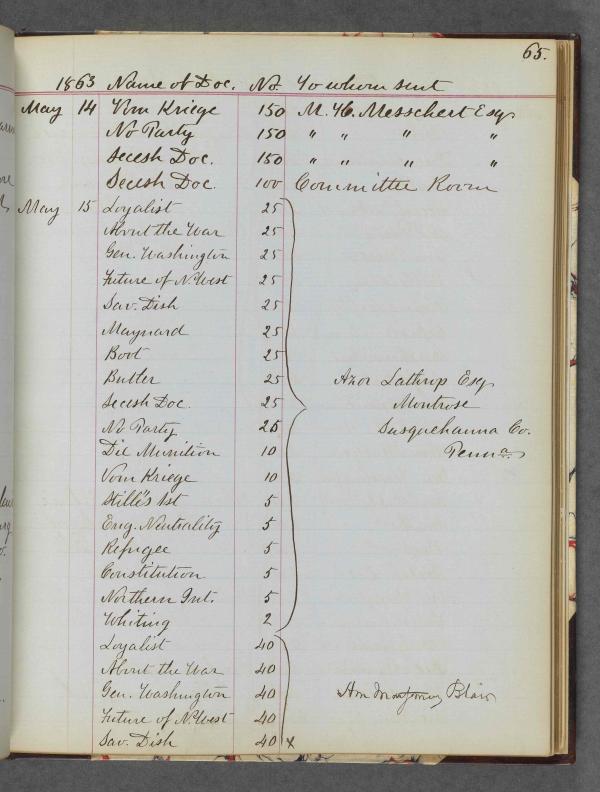 65.
1863 Name of Doc. No. To whom sent
May 14 Vom Kriege 150 M. H. Messchert Esq.
No Party 150 " " " "
Secesh Doc. 150 " " " "
Secesh Doc. 100 Committee Room
May 15 Loyalist 25
About the War 25
Gen. Washington 25
Future of N. West 25
Sav. Dish 25
Maynard 25
Boot 25
Butler 25 Azor Lathrop Esq
Secesh Doc. 25 Montrose
No Party 25 Susquehanna Co.
Die Munition 10 Penna.
Vom Kriege 10
Stillé's 1st 5
Eng. Neutrality 5
Refugee 5
Constitution 5
Northern Int. 5
Whiting 2
Loyalist 40
About the War 40
Gen. Washington 40 Hon Montgomery Blair
Future of N. West 40
Sav. Dish 40 x